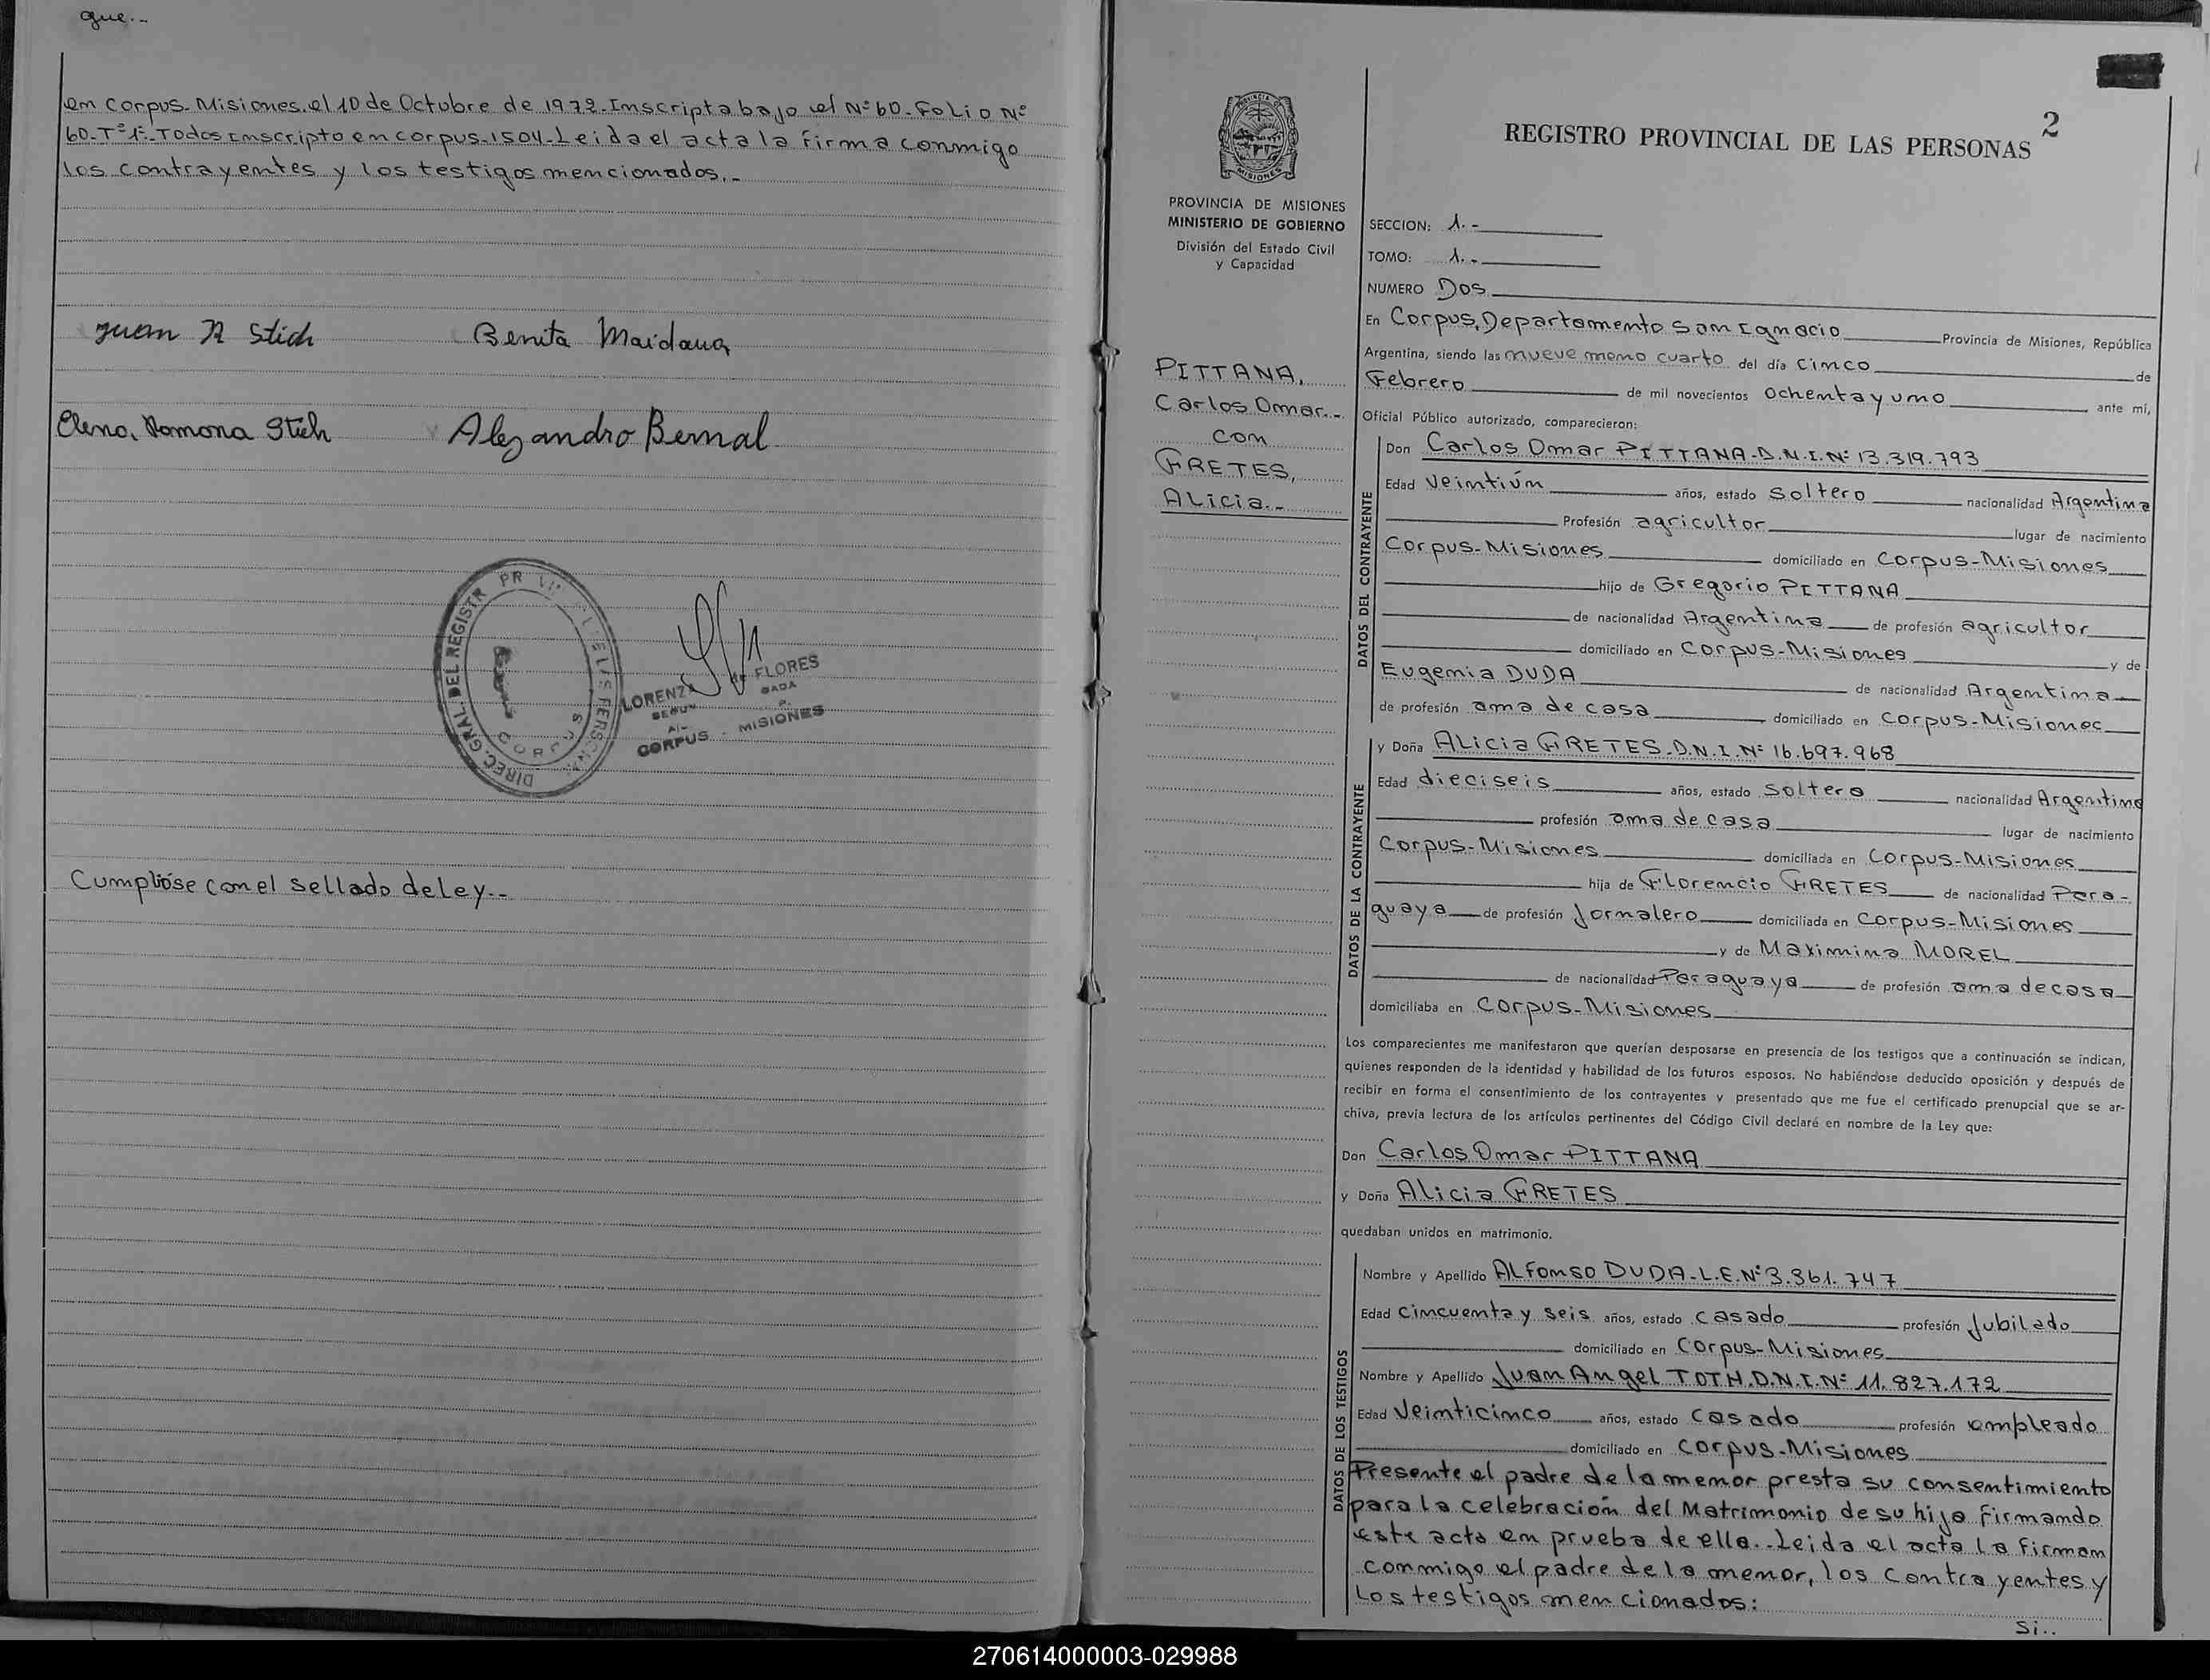 que..
en Corpus. Misiones. el 10 de Octubre de 1972. Inscripta bajo el Nº 60. Folio Nº
60. Tº 1º. Todos inscripto en corpus. 1504. Leida el acta la firma conmigo
los contrayentes y los testigos mencionados..
Juan R Stich Benita Maidana
Elena, Ramona Stich Alejandro Bernal
DIREC. GRAL. DEL REGISTR
LORENZA de FLORES
CORPUS - MISIONES
Cumplióse con el sellado de Ley..
2
REGISTRO PROVINCIAL DE LAS PERSONAS
PROVINCIA DE MISIONES
MINISTERIO DE GOBIERNO
División del Estado Civil
y Capacidad
PITTANA,
Carlos Omar..
con
FRETES,
Alicia..
SECCION: 1.-
TOMO: 1.-
NUMERO Dos
En Corpus, Departamento San Ignacio Provincia de Misiones, República
Argentina, siendo las nueve meno cuarto del día cinco de
Febrero de mil novecientos ochenta y uno ante mí,
Oficial Público autorizado, comparecieron:
DATOS DEL CONTRAYENTE
Don Carlos Omar PITTANA. D.N.I. Nº 13.319.793
Edad veintiún años, estado soltero nacionalidad Argentina
Profesión agricultor lugar de nacimiento
Corpus-Misiones domiciliado en Corpus-Misiones
hijo de Gregorio PITTANA
de nacionalidad Argentina de profesión agricultor
domiciliado en Corpus-Misiones y de
Eugenia DUDA de nacionalidad Argentina
de profesión ama de casa domiciliado en Corpus-Misiones
DATOS DE LA CONTRAYENTE
y Doña Alicia FRETES. D.N.I. Nº 16.697.968
Edad dieciseis años, estado soltera nacionalidad Argentina
profesión ama de casa lugar de nacimiento
Corpus-Misiones domiciliada en Corpus-Misiones
hija de Florencio FRETES de nacionalidad Para-
guaya de profesión Jornalero domiciliada en Corpus-Misiones
y de Maximina MOREL
de nacionalidad Paraguaya de profesión ama de casa
domiciliaba en Corpus-Misiones
Los comparecientes me manifestaron que querían desposarse en presencia de los testigos que a continuación se indican,
quienes responden de la identidad y habilidad de los futuros esposos. No habiéndose deducido oposición y después de
recibir en forma el consentimiento de los contrayentes y presentado que me fue el certificado prenupcial que se ar-
chiva, previa lectura de los artículos pertinentes del Código Civil declaré en nombre de la Ley que:
Don Carlos Omar PITTANA
y Doña Alicia FRETES
quedaban unidos en matrimonio.
DATOS DE LOS TESTIGOS
Nombre y Apellido Alfonso DUDA. L.E. Nº 3.361.747
Edad cincuenta y seis años, estado casado profesión Jubilado
domiciliado en Corpus-Misiones
Nombre y Apellido Juan Angel TOTH. D.N.I. Nº 11.827.172
Edad veinticinco años, estado casado profesión empleado
domiciliado en Corpus-Misiones
Presente el padre de la menor presta su consentimiento
para la celebración del Matrimonio de su hija firmando
este acta en prueba de ella.. Leida el acta la firman
conmigo el padre de la menor, los contrayentes y
los testigos mencionados:
si..
270614000003-029988